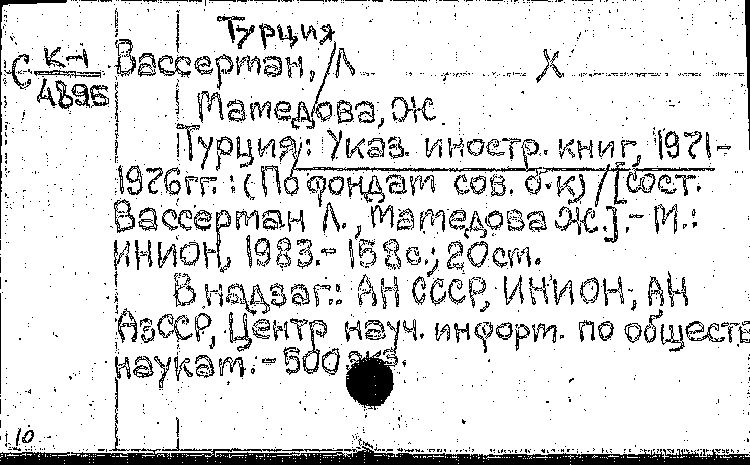 Турция
С К-1 Вассерман, Л Х
4895
Мамедова, Ж
Турция: Указ. иностр. книг, 1971-
1976гг. : (По фондам сов. б-к) / [сост.
Вассерман Л., Мамедова Ж.]. - М.:
ИНИОН, 1983.- 158с.; 20см.
В надзаг.: АН СССР, ИНИОН; АН
АзССР, Центр науч. информ. по обществ
наукам. - 500 экз.
10